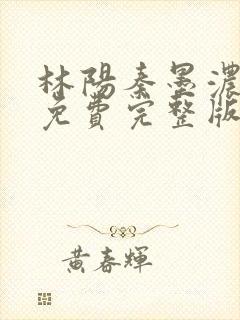 林陽秦墨濃
免費完整版
黃春輝